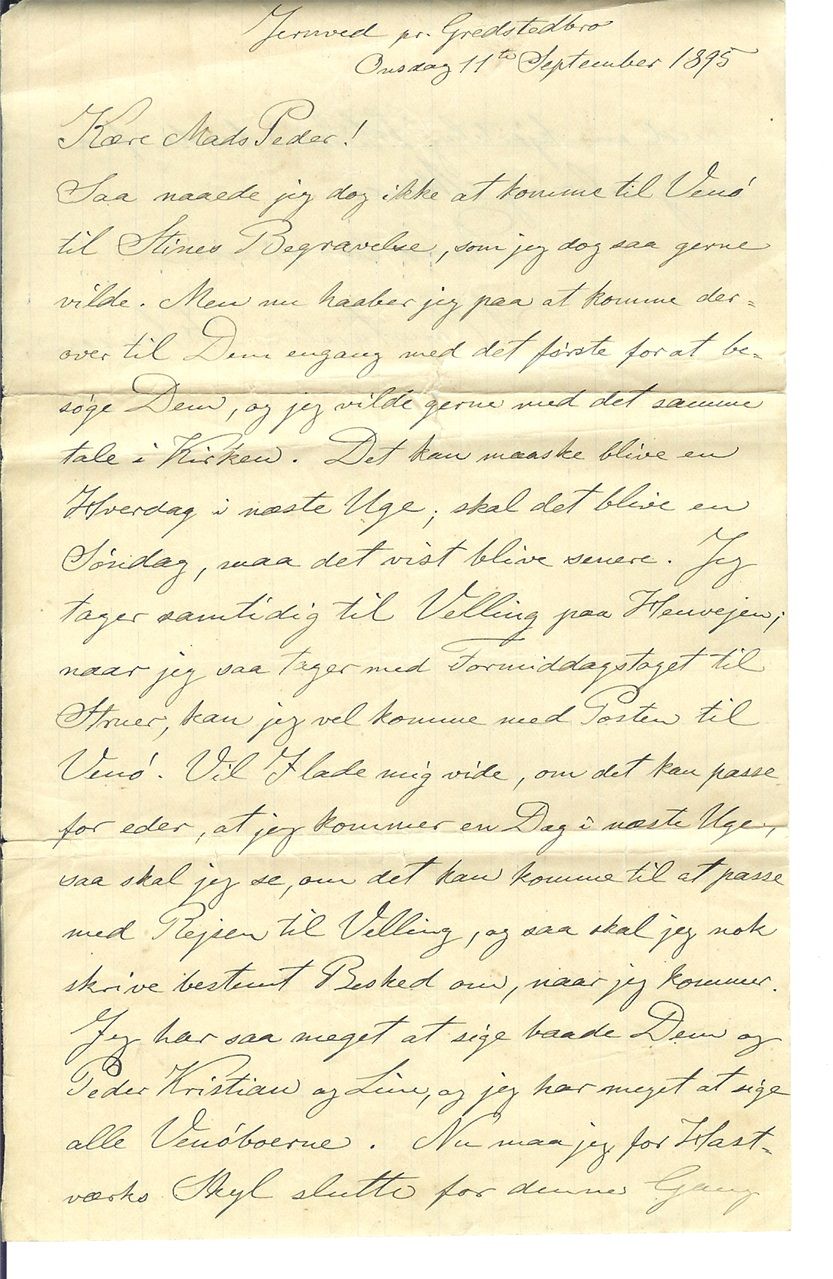 Jernved pr. Gredstedbro
Onsdag 11te September 1895
Kære Mads Peder!
Saa naaede jeg dog ikke at komme til Venø
til Stines Begravelse, som jeg dog saa gerne
vilde. Men nu haaber jeg paa at komme der=
over til Dem engang med det første for at be=
søge Dem, og jeg vilde gerne med det samme
tale i Kirken. Det kan maaske blive en
Hverdag i næste Uge; skal det blive en
Søndag, maa det vist blive senere. Jeg
tager samtidig til Velling paa Henvejen;
naar jeg saa tager med Formiddagstoget til
Struer, kan jeg vel komme med Posten til
Venø. Vil I lade mig vide, om det kan passe
for eder, at jeg kommer en Dag i næste Uge,
saa skal jeg se, om det kan komme til at passe
med Rejsen til Velling, og saa skal jeg nok
skrive bestemt Besked om, naar jeg kommer.
Jeg har saa meget at sige baade Dem og
Peder Kristian og Line, og jeg har meget at sige
alle Venøboerne. Nu maa jeg for Hast=
værks Skyl slutte for denne Gang